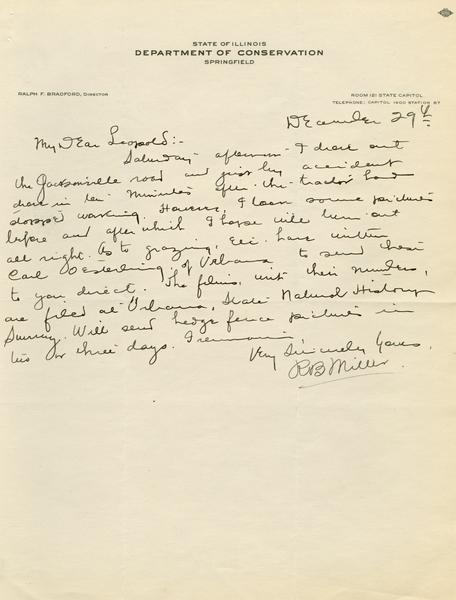 STATE OF ILLINOIS
DEPARTMENT OF CONSERVATION
SPRINGFIELD
RALPH F. BRADFORD, DIRECTOR
ROOM 121 STATE CAPITOL
TELEPHONE: CAPITOL 1600 STATION 87
December 29th
My Dear Leopold:-
Saturday afternoon I drove out
the Jacksonville road and just by accident
drove in ten minutes after the tractor had
stopped working. However, I took some pictures
before and after which I hope will turn out
all right. As to grazing, Etc. have written
Carl Oesterling of Urbana to send them
to you direct. The films, with their numbers,
are filed at Urbana, State Natural History
Survey. Will send hedge fence pictures in
two or three days. I remain
Very Sincerely Yours,
RB Miller.